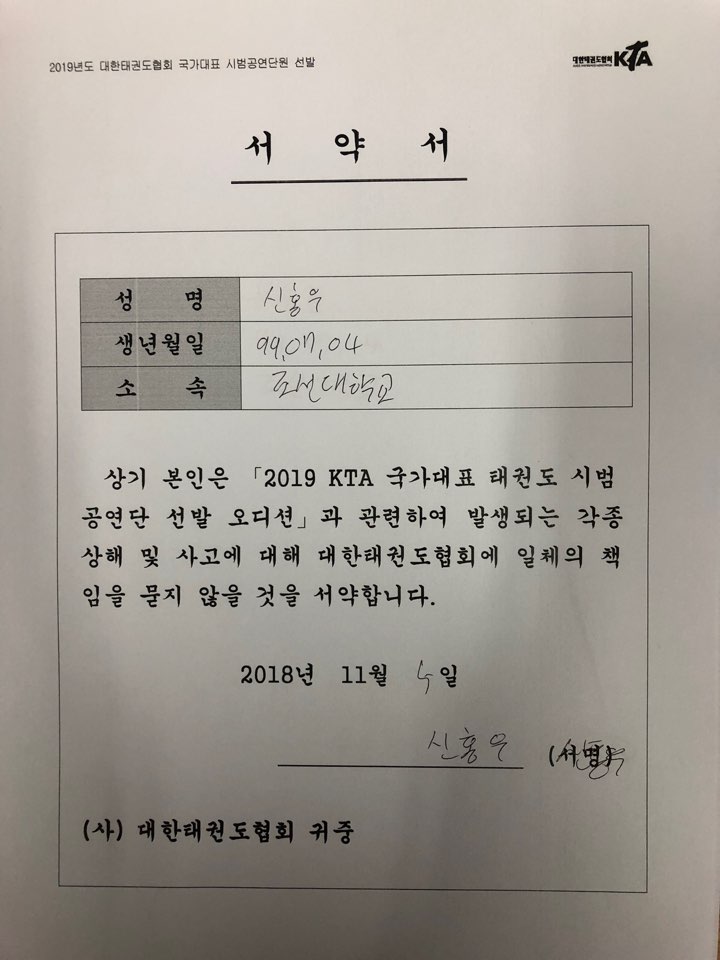 2019년도 대한태권도협회 국가대표 시범공연단원 선발
대한태권도협회 KTA
서 약 서
성 명 신홍우
생년월일 99.07.04
소 속 조선대학교
상기 본인은 「2019 KTA 국가대표 태권도 시범
공연단 선발 오디션」과 관련하여 발생되는 각종
상해 및 사고에 대해 대한태권도협회에 일체의 책
임을 묻지 않을 것을 서약합니다.
2018년 11월 4일
신홍우 (서명)
(사) 대한태권도협회 귀중